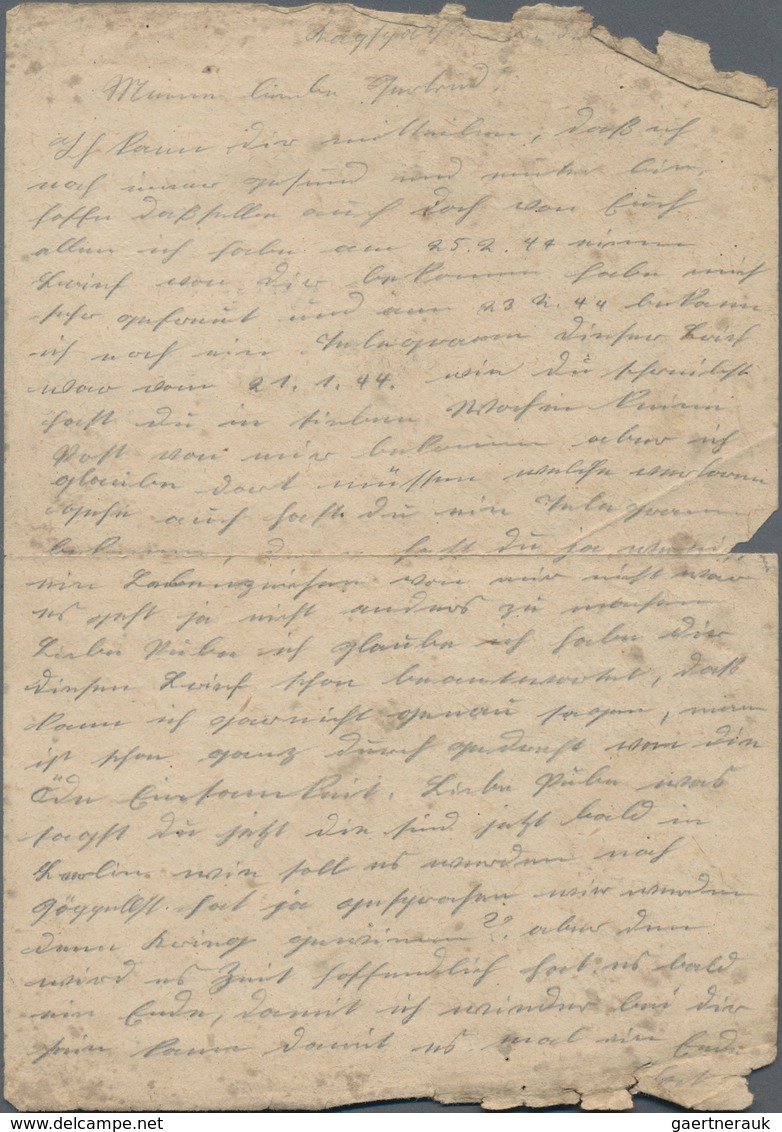 Meine liebe Gertrud!
Ich kann dir mitteilen, daß ich
noch immer gesund und munter bin,
hoffe daßselbe auch doch von Euch
allen ich habe am 25.2.44 einen
Brief von dir bekommen habe mich
sehr gefreut und am 23 2.44 bekam
ich noch ein Telegramm dieser Brief
war vom 21.1.44. wie du schreibst
hast du in sieben Wochen keine
Post von mir bekommen aber ich
glaube dort müssen welche verloren
gehn auch hast du ein Telegramm
hast du ja
ein Lebenzeichen von mir nicht war
es geht ja nicht anders zu machen
Liebe ich glaube ich habe dir
diesen Brief schon beantwortet, daß
kann ich garnicht genau sagen, man
ist schon ganz durch gedreht von die
Öde Einsamkeit. Liebe was
sagst du jetzt die sind jetzt bald in
Berlin wie soll es werden noch
hat ja gesprochen wir werden
denn Krieg gewinnen?? aber dem
wird es Zeit hoffendlich hat es bald
ein Ende, damit ich wieder bei dir
sein kann damit es mal ein Ende